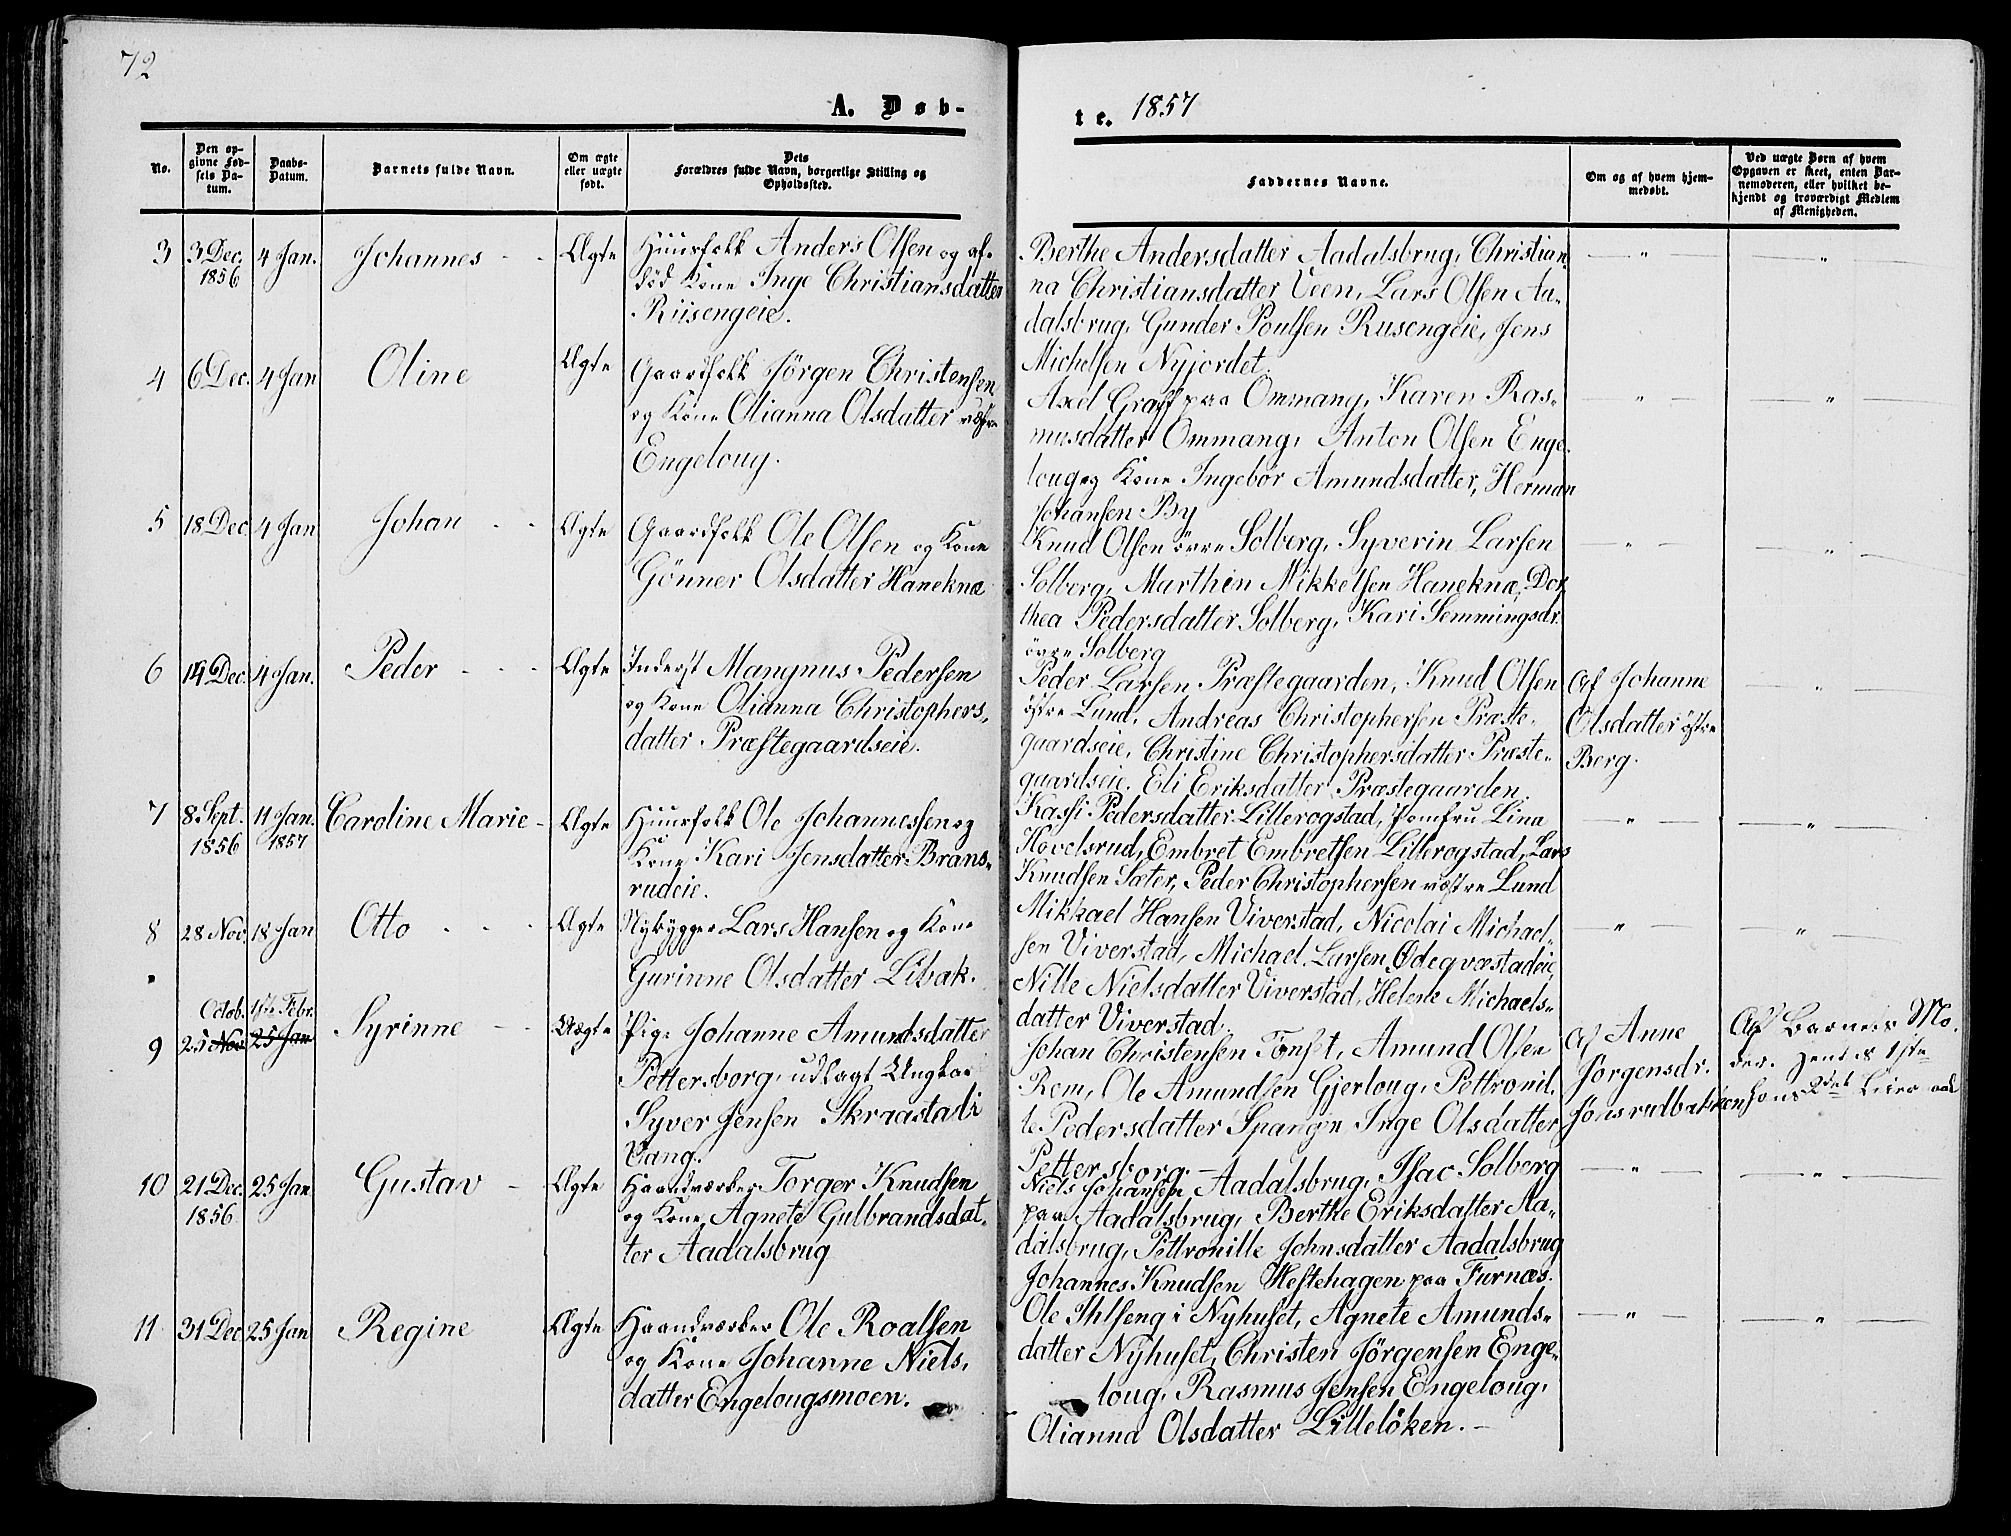 72
A. Døb-
No.
Den op-
givne Fød-
sels Da-
tum.
Daabs-
Datum.
Barnets fulde Navn.
Om ægte
eller uægte
født.
Dets
Forældres fulde Navn, borgerlige Stilling og
Opholdssted.
3
3 Dec.
1856
4 Jan.
Johannes
Ægte
Huusfolk Anders Olsen og af-
död Kone Inge Christiansdatter
Riisengeie.
4
6 Dec.
4 Jan
Oline
Ægte
Gaardfolk Jörgen Christensen
og Kone Olianna Olsdatter vestre
Engeloug.
5
18 Dec
4 Jan
Johan
Ægte
Gaardfolk Ole Olsen og Kone
Gönner Olsdatter Haneknæ
6
14 Dec.
4 Jan.
Peder
Ægte
Inderst Mangnus Pedersen
og Kone Olianna Christophers,
datter Præstegaardseie.
7
8 Sept.
1856
11 Jan.
1857
Caroline Marie
Ægte
Huusfolk Ole Johannessen og
Kone Kari Jensdatter Brans-
rudeie.
8
28 Nov.
18 Jan
Otto
Ægte
Nybygger Lars Hansen og Kone
Gurinne Olsdatter Libak.
9
Octob.
25 Nov
1ste Febr.
25 Jan
Syrinne
Uægte
Pige Johanne Amundsdatter
Pettersborg, udlagt Ungkar
Syver Jensen Skraastad i
Vang.
10
21 Dec.
1856
25 Jan
Gustav
Ægte
Haandværker Torger Knudsen
og Kone Agnete Gulbrandsdat-
ter Aadalsbrug
11
31 Dec
25 Jan
Regine
Ægte
Haandværker Ole Roalsen
og Kone Johanne Niels,
datter Engelougsmoen.
te. 1857
Faddernes Navne.
Om og af hvem hjem-
medøbt.
Ved uægte Børn af hvem
Opgaven er skeet, enten Bar-
nemoderen, eller hvilket be-
kjendt og troværdigt Medlem
af Menigheden.
Berthe Andersdatter Aadalsbrug, Christian-
na Christiansdatter Veen, Lars Olsen Aa-
dalsbrug, Gunder Poulsen Rusengeie, Jens
Michelsen Nyjordet.
Axel Graff paa Ommang, Karen Ras-
musdatter Ommang, Anton Olsen Enge-
loug og Kone Ingebor Amundsdatter, Herman
Johansen By
Knud Olsen övre Solberg, Syverin Larsen
Solberg, Marthin Mikkelsen Haneknæ, Dor-
thea Pedersdatter Solberg, Kari Semmingsdr.
övre Solberg
Peder Larsen Præstegaarden, Knud Olsen
östre Lund, Andreas Christophersen Præste-
gaardseie, Christine Christophersdatter Præste-
gaardseie. Eli Eriksdatter Præstegaarden.
Af Johanne
Olsdatter östre
Berg.
Kassi Pedersdatter Lillerogstad, Jomfru Lina
Hovelsrud, Embret Embretsen Lillerogstad, Lars
Knudsen Sæter, Peder Christophersen vestre Lund
Mikkael Hansen Viverstad, Nicolai Michael-
sen Viverstad, Michael Larsen Ödeqvæstadeie,
Nille Nielsdatter Viverstad, Helene Michaels-
datter Viverstad.
Johan Christensen Tönset, Amund Olsen
Rem, Ole Amundsen Gjerloug, Pettronil-
le Pedersdatter Spangen Inge Olsdatter
Pettersborg. –
Af Anne
Jorgensdr.
Jonsrudbakken
Af Barnets Mo-
der. 1ste
2det
Niels Johansen, Aadalsbrug, Isac Solberg
paa Aadalsbrug, Berthe Eriksdatter Aa-
dalsbrug, Pettronille Johnsdatter Aadalsbrug
Johannes Knudsen Hestehagen paa Furnæs.
Ole Ihlseng i Nyhuset, Agnete Amunds-
datter Nyhuset, Christen Jörgensen Enge-
loug, Rasmus Jensen Engeloug,
Olianna Olsdatter Lilleløken. –